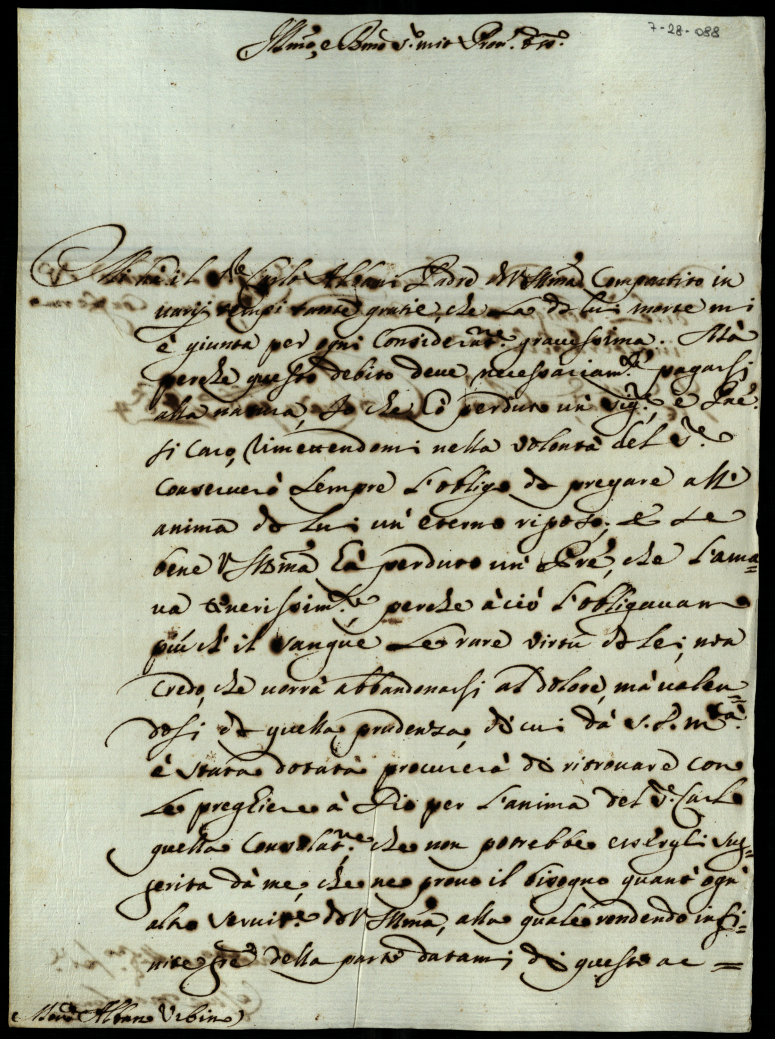 7-28-088
Ill.mo, e R.mo S.r mio Pron. Col.mo
il S.re Carlo Albani Padre di V.S. Ill.ma Compartito in
varij tempi tante gratie, che la di lui morte mi
è giunta per ogni Considerat.ne gravissima. Mà
perche questo debito deve necessariam.te pagarsi
alla natura, Io che hò perduto un' Sig.re, e Pnē
si Caro, rimettendomi nella volontà del S.re
Conserverò sempre l'obligo di pregare all'
anima di lui un' eterno riposo; e se
bene V.S. Ill.ma hà perduto un' Pre, che l'ama=
va tenerissim.te perche à ciò l'obligavano
più ch' il sangue le rare virtù di lei; non
Credo, che vorrà abbandonarsi al dolore, mà valen=
dosi di quella prudenza, di cui dà S.D.M.tà
è stata dotata procurerà di ritrovare con
le preghiere à Dio per l'anima del S.r Carlo
quella Consolat.ne che non potrebbe essergli sug=
gerita dà me, che ne provo il bisogno quant' ogn'
altro Servit.re di V.S. Ill.ma, alla quale rendendo infi=
nite gre della parte datami di questo ac=
Albani Urbino)